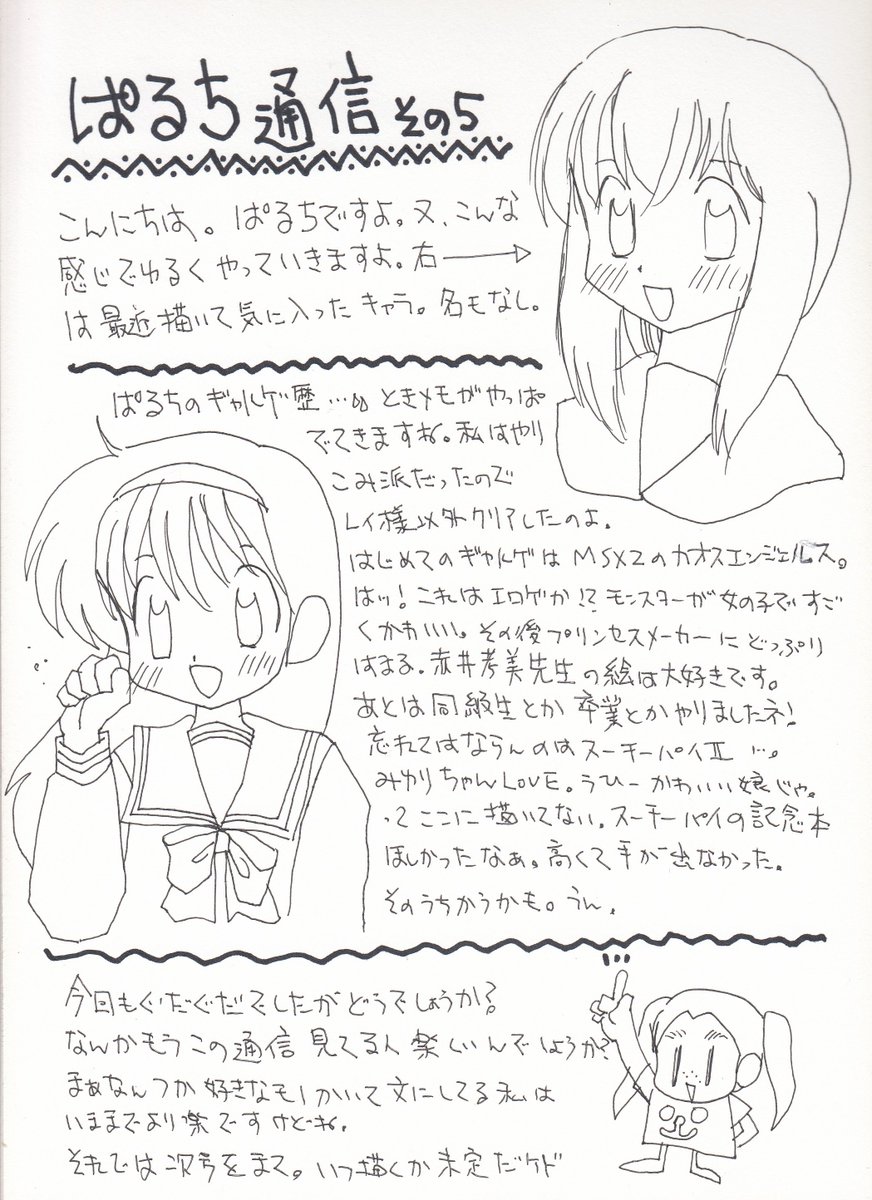 ぱるち通信 その5
こんにちは。ぱるちですよ。又、こんな
感じでゆるくやっていきますよ。右→
は最近描いて気に入ったキャラ。名もなし。
ぱるちのギャルゲ歴…。ときメモがやっぱ
でてきますね。私はやり
こみ派だったので
レイ様以外クリアしたのよ。
はじめてのギャルゲはMSX2のカオスエンジェルス。
はッ!これはエロゲか!?モンスターが女の子ですご
くかわいい。その後プリンセスメーカーにどっぷり
はまる。赤井孝美先生の絵は大好きです。
あとは同級生とか卒業とかやりましたネ!
忘れてはならんのはスーチーパイⅡ…。
みゆりちゃんLOVE。うひーかわいい娘じゃ。
ってここに描いてない。スーチーパイの記念本
ほしかったなぁ。高くて手が出なかった。
そのうちかうかも。うん。
今回もぐだぐだでしたがどうでしょうか?
なんかもうこの通信見てる人楽しいんでしょうか?
まぁなんつか好きなモノかいて文にしてる私は
いままでより楽ですけどね。
それでは次号をまて。いつ描くか未定だケド